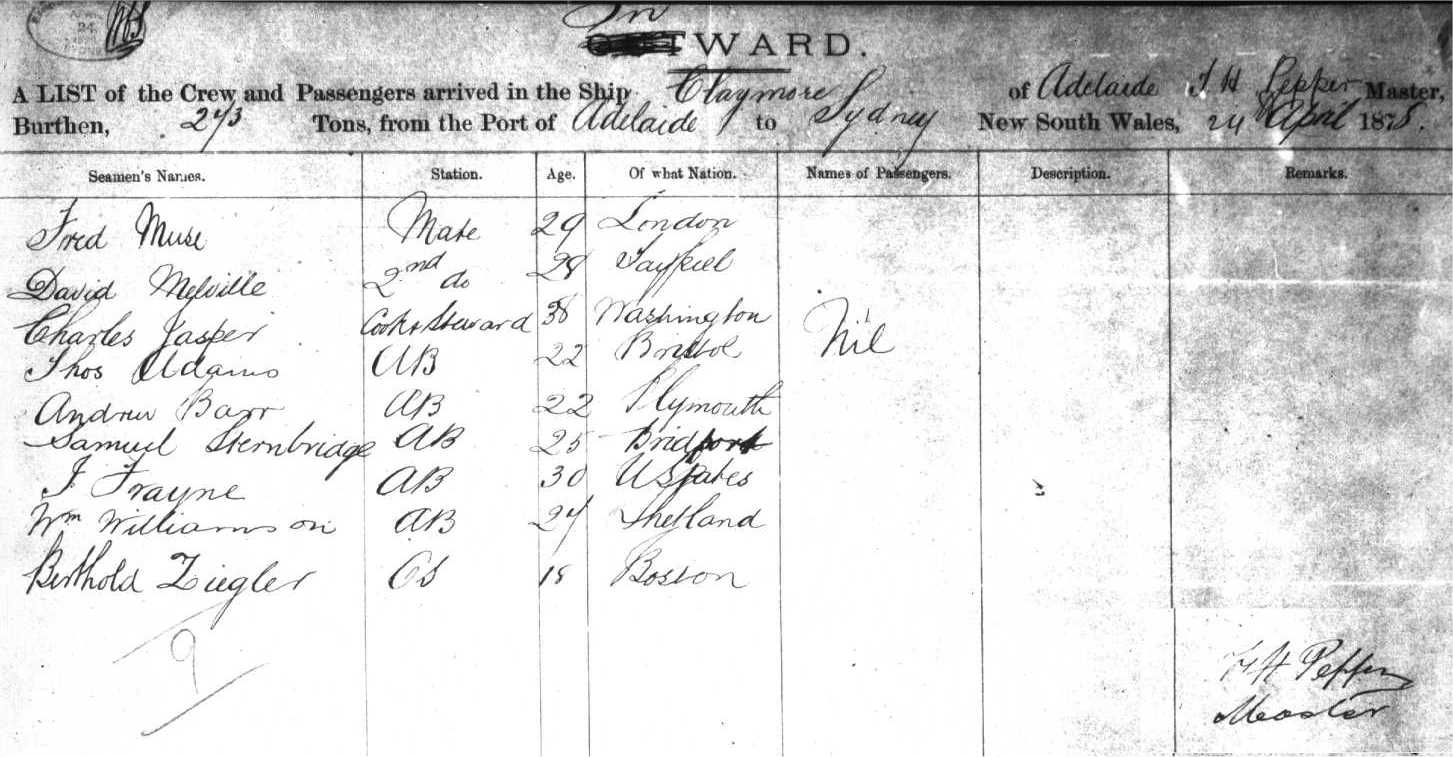 In
WARD.
A LIST of the Crew and Passengers arrived in the Ship Claymore of Adelaide Pepper Master,
Burthen, 243 Tons, from the Port of Adelaide to Sydney New South Wales, 24 April 1875.
Seamen's Names. Station. Age. Of what Nation. Names of Passengers. Description. Remarks.
Fred Muse Mate 29 London
David Melville 2nd do 28
Charles Jasper Cook & Steward 38 Washington Nil
Thos Adams AB 22 Bristol
Andrew Barr AB 22 Plymouth
Samuel Sternbridge AB 25 Bridport
Frayne AB 30 U States
Wm Williamson AB 24 Shetland
Berthold Ziegler OS 18 Boston
9
H Pepper
Master